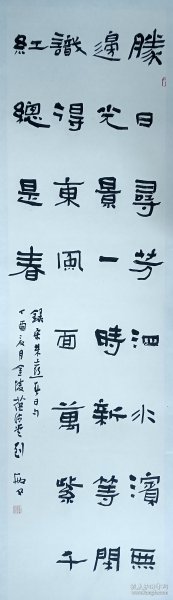 勝日尋芳泗水濱無
邊光景一時新等閒
識得東風面萬紫千
紅總是春
錄宋朱熹春日句
丁酉